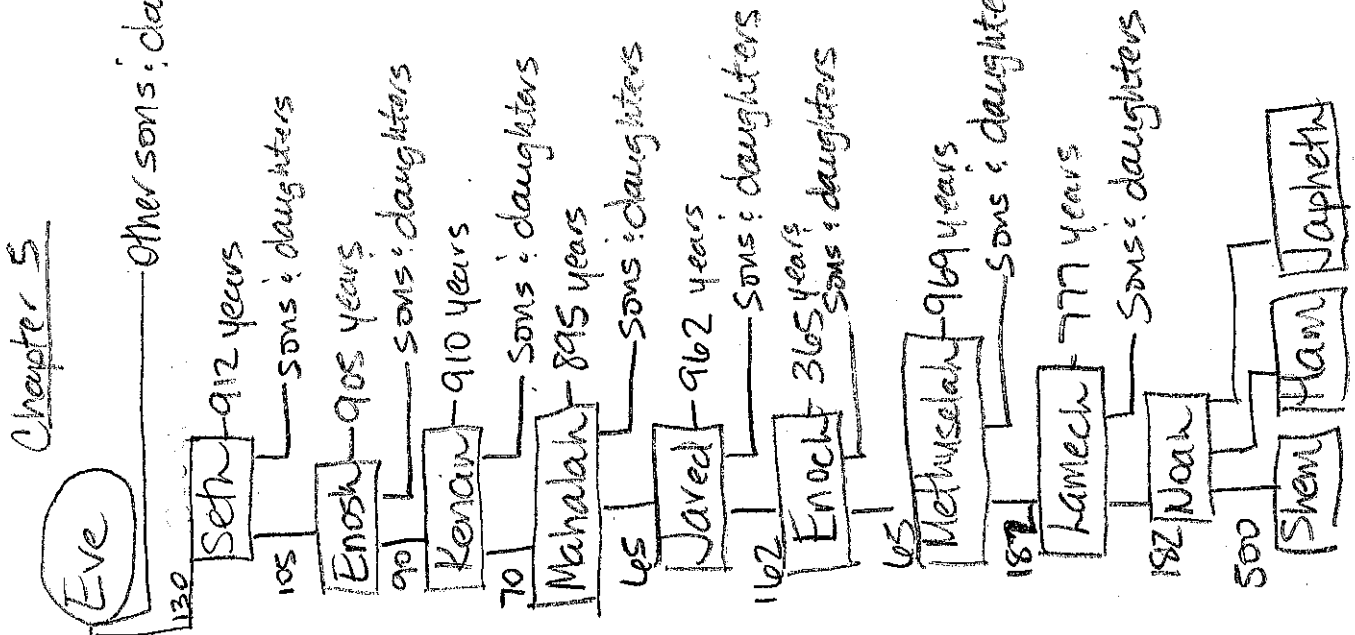 Chapter 5
Eve
Other sons : da
130
Seth - 912 years
sons : daughters
105
Enosh - 905 years
sons : daughters
90
Kenan - 910 years
Sons : daughters
70
Mahalah - 895 years
Sons : daughters
65
Jared - 962 years
Sons : daughters
162
Enoch - 365 years
Sons : daughters
65
Methuselah - 969 years
Sons : daughte
187
Lamech - 777 years
Sons : daughters
182
Noah
500
Shem Ham Japheth